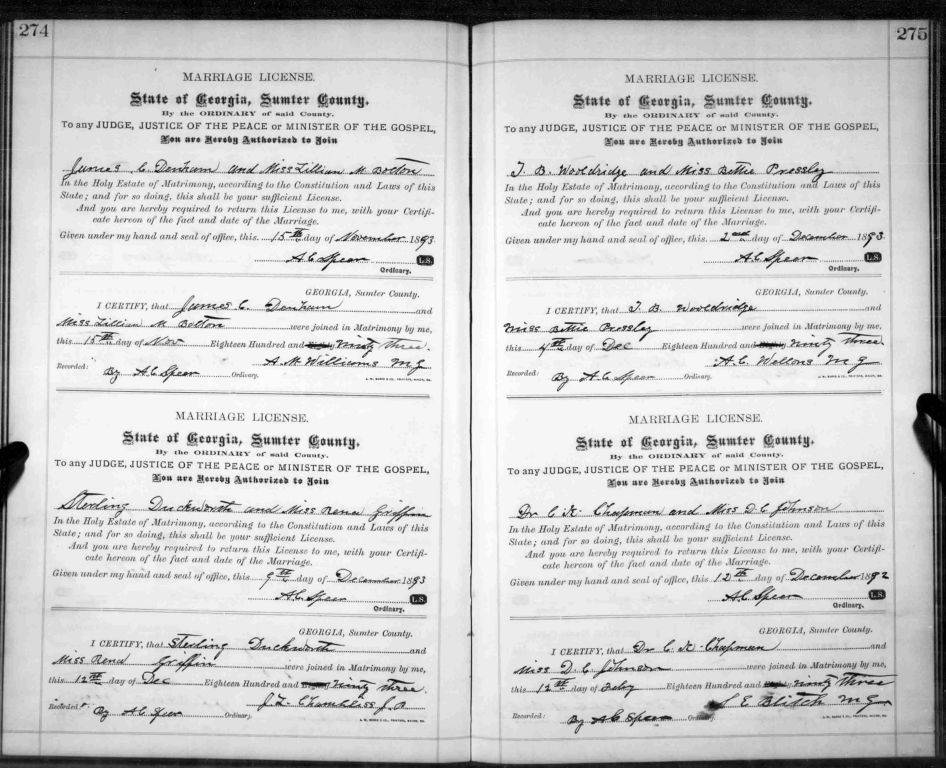 274
MARRIAGE LICENSE.
State of Georgia, Sumter County.
By the ORDINARY of said County.
To any JUDGE, JUSTICE OF THE PEACE or MINISTER OF THE GOSPEL,
You are Hereby Authorized to Join
James C. Denham and Miss Lillian M Bolton
In the Holy Estate of Matrimony, according to the Constitution and Laws of this
State; and for so doing, this shall be your sufficient License.
And you are hereby required to return this License to me, with your Certifi-
cate hereon of the fact and date of the Marriage.
Given under my hand and seal of office, this 15th day of November 1893
A C Speer L.S.
Ordinary.
GEORGIA, Sumter County.
I CERTIFY, that James C. Denham and
Miss Lillian M Bolton were joined in Matrimony by me,
this 15th day of Nov Eighteen Hundred and Eighty Ninety three
A. M. Williams M G
Recorded: By A.C. Speer Ordinary.
MARRIAGE LICENSE.
State of Georgia, Sumter County.
By the ORDINARY of said County.
To any JUDGE, JUSTICE OF THE PEACE or MINISTER OF THE GOSPEL,
You are Hereby Authorized to Join
Sterling Duckworth and Miss Rena Griffin
In the Holy Estate of Matrimony, according to the Constitution and Laws of this
State; and for so doing, this shall be your sufficient License.
And you are hereby required to return this License to me, with your Certifi-
cate hereon of the fact and date of the Marriage.
Given under my hand and seal of office, this 9th day of December 1893
A C Speer L.S.
Ordinary.
GEORGIA, Sumter County.
I CERTIFY, that Sterling Duckworth and
Miss Rena Griffin were joined in Matrimony by me,
this 12th day of Dec Eighteen Hundred and Eighty Ninety three
J. L. Chambliss J. P
Recorded: By A C Speer Ordinary.
275
MARRIAGE LICENSE.
State of Georgia, Sumter County.
By the ORDINARY of said County.
To any JUDGE, JUSTICE OF THE PEACE or MINISTER OF THE GOSPEL,
You are Hereby Authorized to Join
T. B. Wooldridge and Miss Bettie Pressley
In the Holy Estate of Matrimony, according to the Constitution and Laws of this
State; and for so doing, this shall be your sufficient License.
And you are hereby required to return this License to me, with your Certifi-
cate hereon of the fact and date of the Marriage.
Given under my hand and seal of office, this 2nd day of December 1893.
A C Speer L.S.
Ordinary.
GEORGIA, Sumter County.
I CERTIFY, that T. B. Wooldridge and
Miss Bettie Pressley were joined in Matrimony by me,
this 4th day of Dec Eighteen Hundred and Eighty Ninty three.
A. C. Wellons M G
Recorded: By A C Speer Ordinary.
MARRIAGE LICENSE.
State of Georgia, Sumter County.
By the ORDINARY of said County.
To any JUDGE, JUSTICE OF THE PEACE or MINISTER OF THE GOSPEL,
You are Hereby Authorized to Join
Dr. C. K. Chapman and Miss D. C Johnson
In the Holy Estate of Matrimony, according to the Constitution and Laws of this
State; and for so doing, this shall be your sufficient License.
And you are hereby required to return this License to me, with your Certifi-
cate hereon of the fact and date of the Marriage.
Given under my hand and seal of office, this 12th day of December 1892
A C Speer L.S.
Ordinary.
GEORGIA, Sumter County.
I CERTIFY, that Dr C. K. Chapman and
Miss D. C. Johnson were joined in Matrimony by me,
this 12th day of Feby Eighteen Hundred and Eighty Ninty three
S E Blitch M G
Recorded: By A C Speer Ordinary.